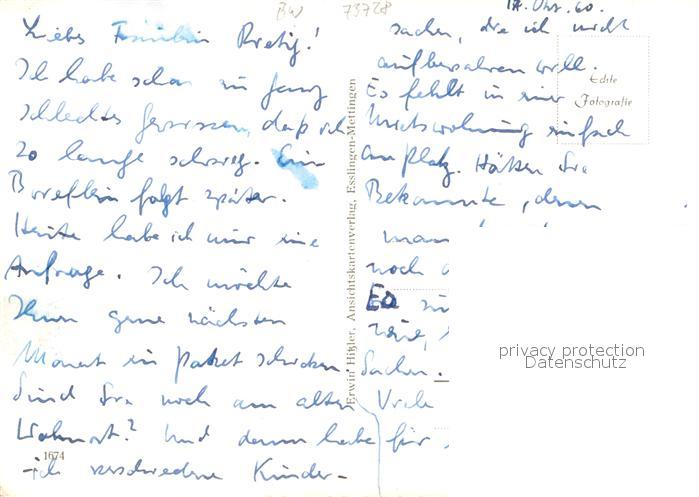 BW 73728
17. Okt. 60.
Liebes Fräulein Pretig!
Ich habe schon ein ganz
schlechtes Gewissen, daß ich
so lange schwieg. Ein
Brieflein folgt später.
Heute habe ich nur eine
Anfrage. Ich möchte
Ihnen gerne nächsten
Monat ein Paket schicken
Sind Sie noch am alten
Wohnort? Und dann habe
ich verschiedene Kinder-
1674
Erwin Hißler, Ansichtskartenverlag, Esslingen-Mettingen
sachen, die ich nicht
aufbewahren will.
Es fehlt in einer
Mietswohnung einfach
am Platz. Hätten Sie
Bekannte, denen
man
noch
Es
reine,
Sachen.
Viele
für
Echte
Fotografie
privacy protection
Datenschutz